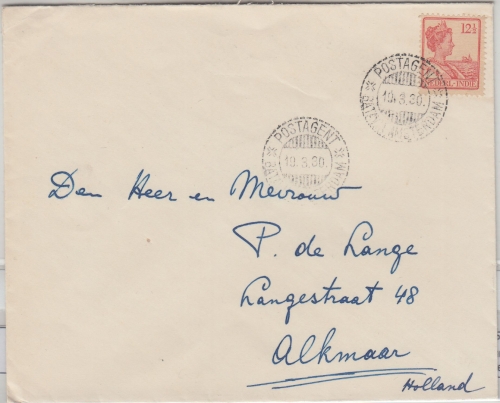 12½
NED. INDIE
POSTAGENT
19.3.30.
AMSTERDAM
POSTAGENT
19.3.30
Den Heer en Mevrouw
P. de Lange
Langestraat 48
Alkmaar
Holland